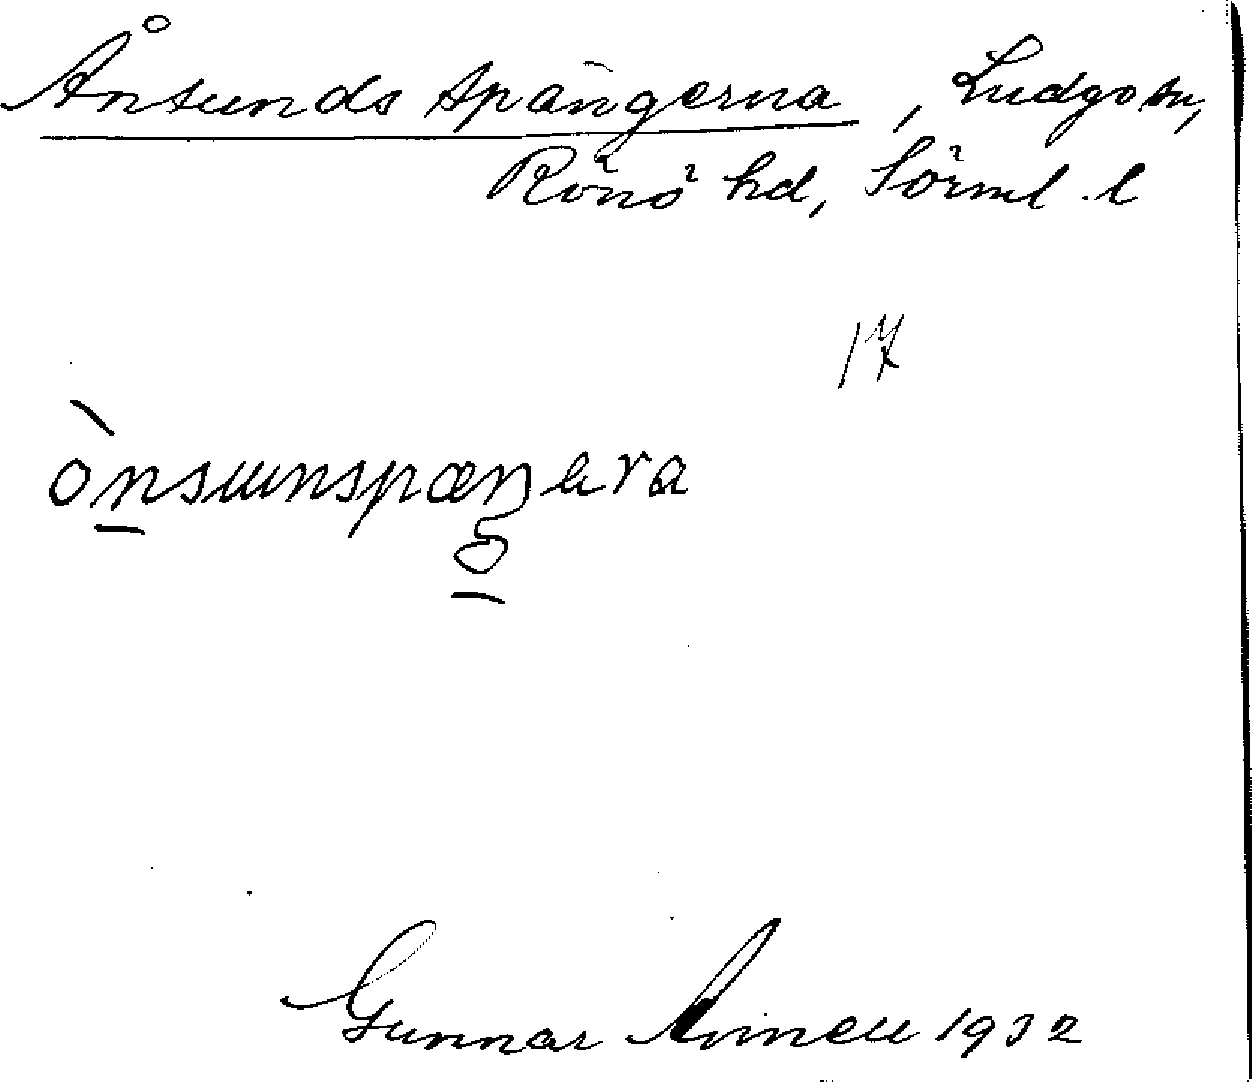 Ånsunds spängerna, Ludgo sn,
Rönö hd, Sörml. l
17
ònsunspæŋera
Gunnar Arinell 1932